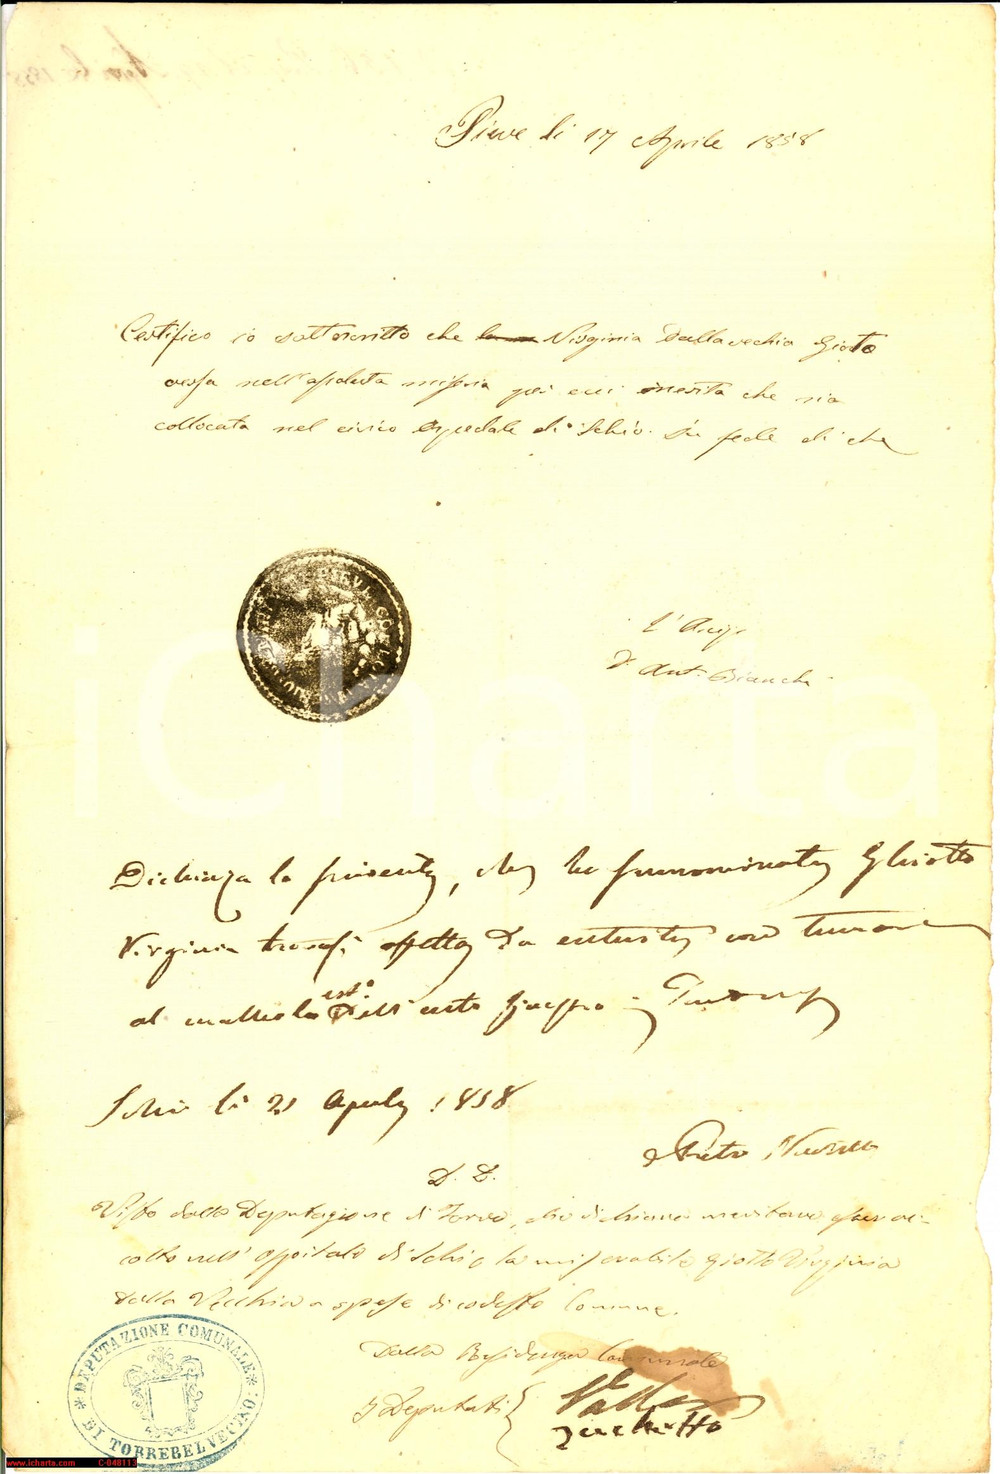 Pieve li 17 Aprile 1858
Certifico io sottoscritto che Virginia Dallavechia Giotto
versa nell'assoluta miseria per cui merita che sia
collocata nel civico Ospedale di Schio. In fede di che
L'Arcip.
D. Ant. Bianchi
Dichiara la presente, che la sunnominata Ghiotto
Virginia trovasi affetta da con tumore
al malleolo est.º dell'
Schio li 21 Aprile 1858
Pietro
D. D.
Visto dalla Deputazione di Torre, che dichiara meritare esser ac-
colta nell'Ospitale di Schio la miserabile Giotto Virginia
dalla Vecchia a spese di codesto Comune.
Dalla Residenza Comunale
I Deputati
DEPUTAZIONE COMUNALE
DI TORREBELVECINO.
iCharta
www.icharta.com C-048113